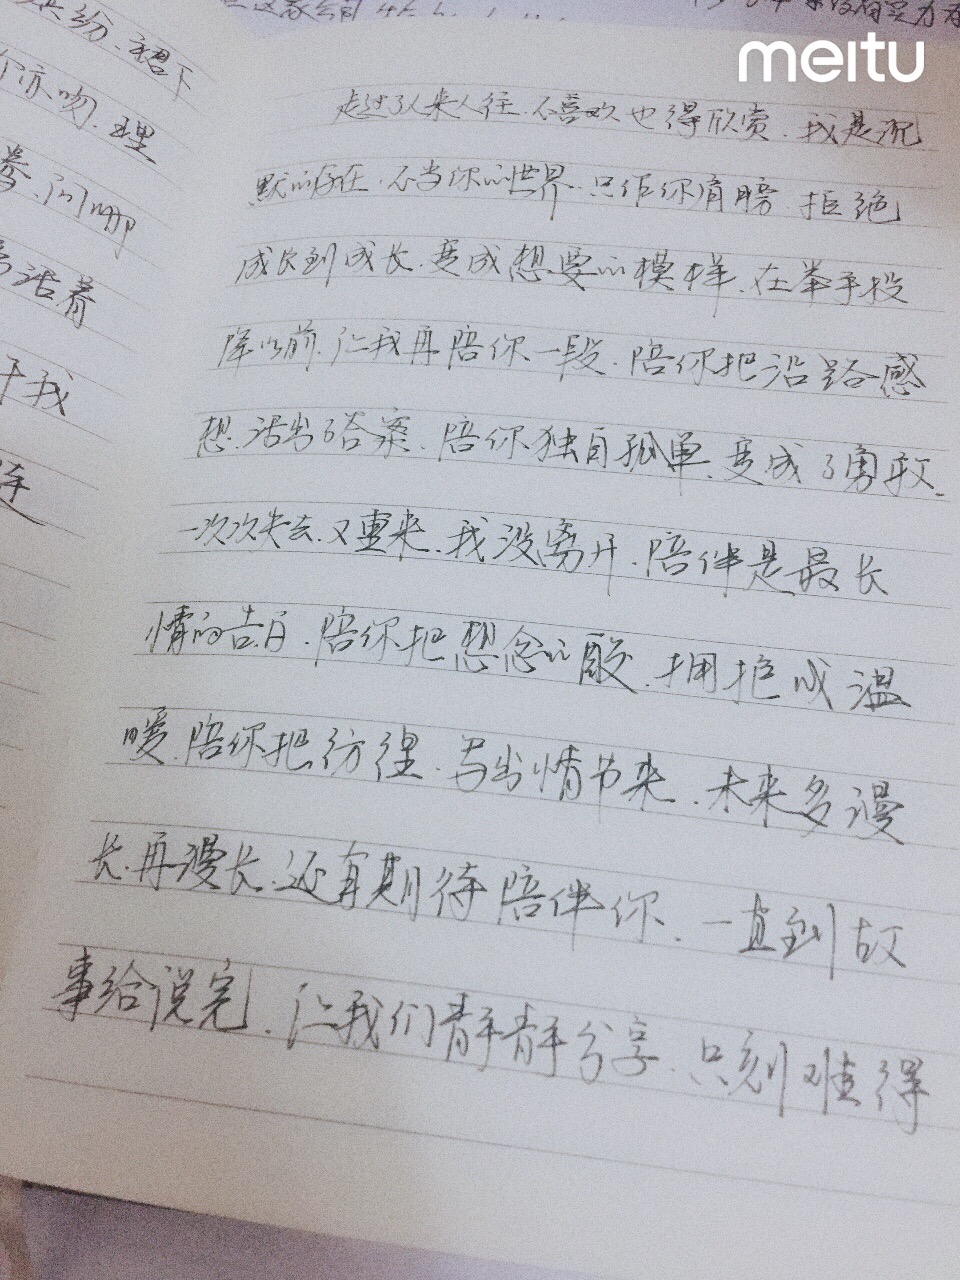 meitu
纷.裙下
亦吻.理
卷.问哪
活着
干我
走过了人来人往.不喜欢也得欣赏.我是沉
默的存在.不当你的世界.只作你肩膀.拒绝
成长到成长.变成想要的模样.在举手投
降以前.让我再陪你一段.陪你把沿路感
想.活出了答案.陪你独自孤单.变成了勇敢.
一次次失去.又重来.我没离开.陪伴是最长
情的告白.陪你把想念的酸.拥抱成温
暖.陪你把彷徨.写出情节来.未来多漫
长.再漫长.还有期待陪伴你.一直到故
事给说完.让我们静静分享.只刻难得